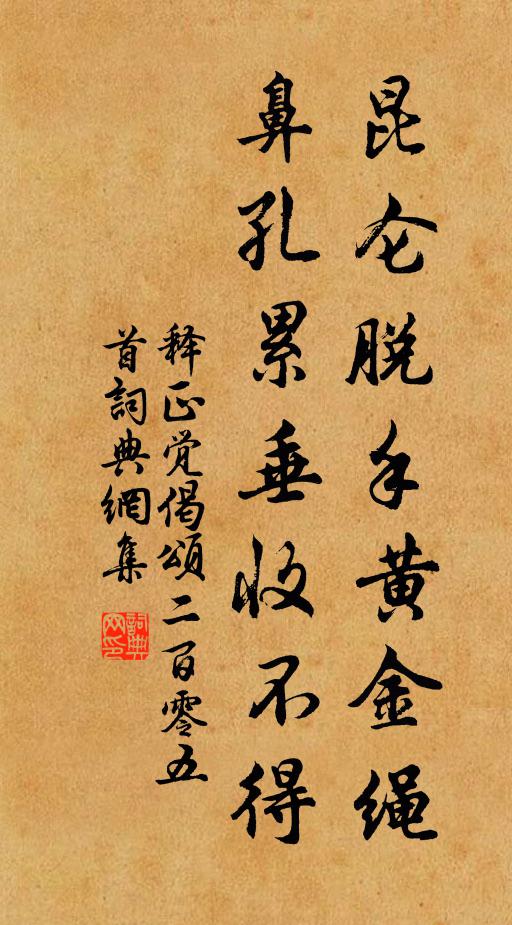 昆仑脱手黄金绳
鼻孔累垂收不得
释正觉偈颂二百零五
首詞典網集
詞典網印